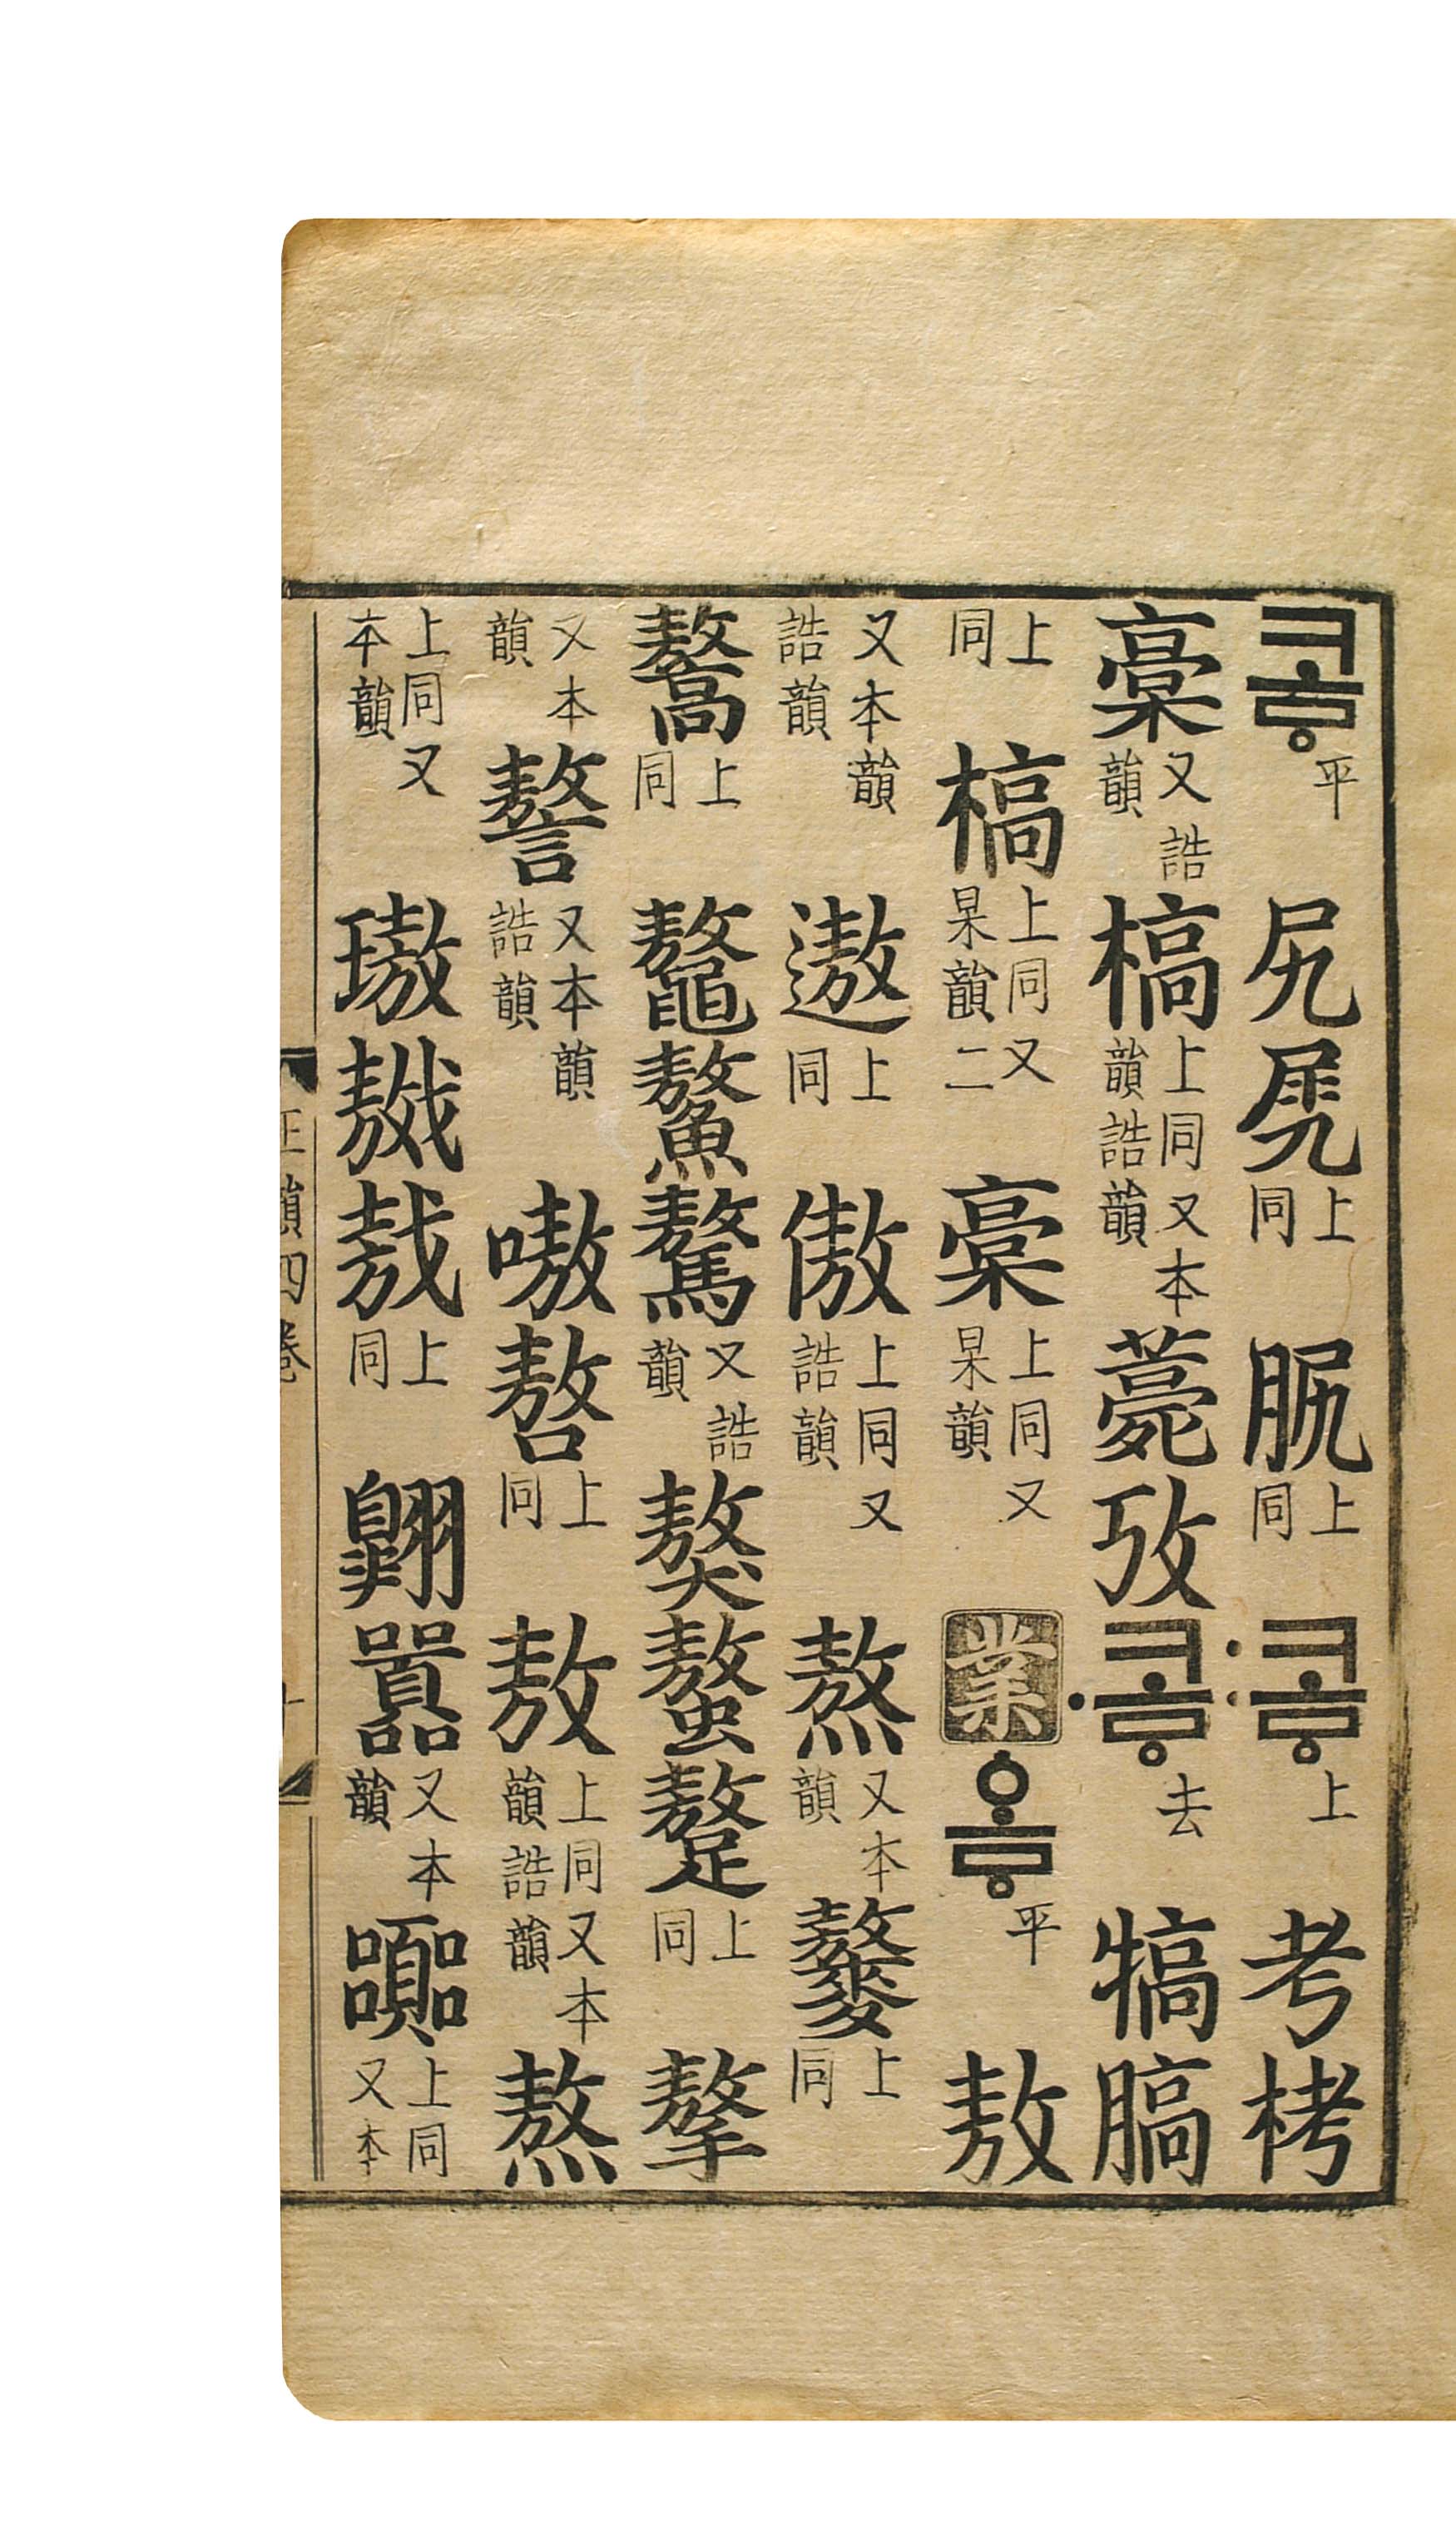 코ᇢ平尻上同上同:코ᇢ上考栲
槀又誥韻槁上同又本韻誥韻薧攷·코ᇢ去犒
上同槁上同又杲韻二槀上同又杲韻業ᅌᅩᇢ平敖
又本韻誥韻遨上同傲上同又誥韻熬又本韻上同
上同鼇鰲驁又誥韻獒螯上同摮
又本韻謷又本韻誥韻嗷上同敖上同又本韻誥韻熬
上同又本韻璈上同翶囂又本韻上同又本
正韻四卷